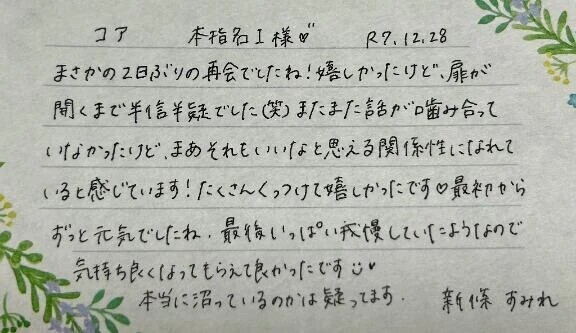 コア 本指名I様♡" R7.12.28
まさかの2日ぶりの再会でしたね!嬉しかったけど、扉が
開くまで半信半疑でした(笑)またまた話が噛み合って
いなかったけど、まあそれもいいなと思える関係性になれて
いると感じています!たくさんくっつけて嬉しかったです♡最初から
ずっと元気でしたね、最後いっぱい我慢していたようなので
気持ち良くなってもらえて良かったです
本当に沼っているのかは疑ってます. 新條 すみれ